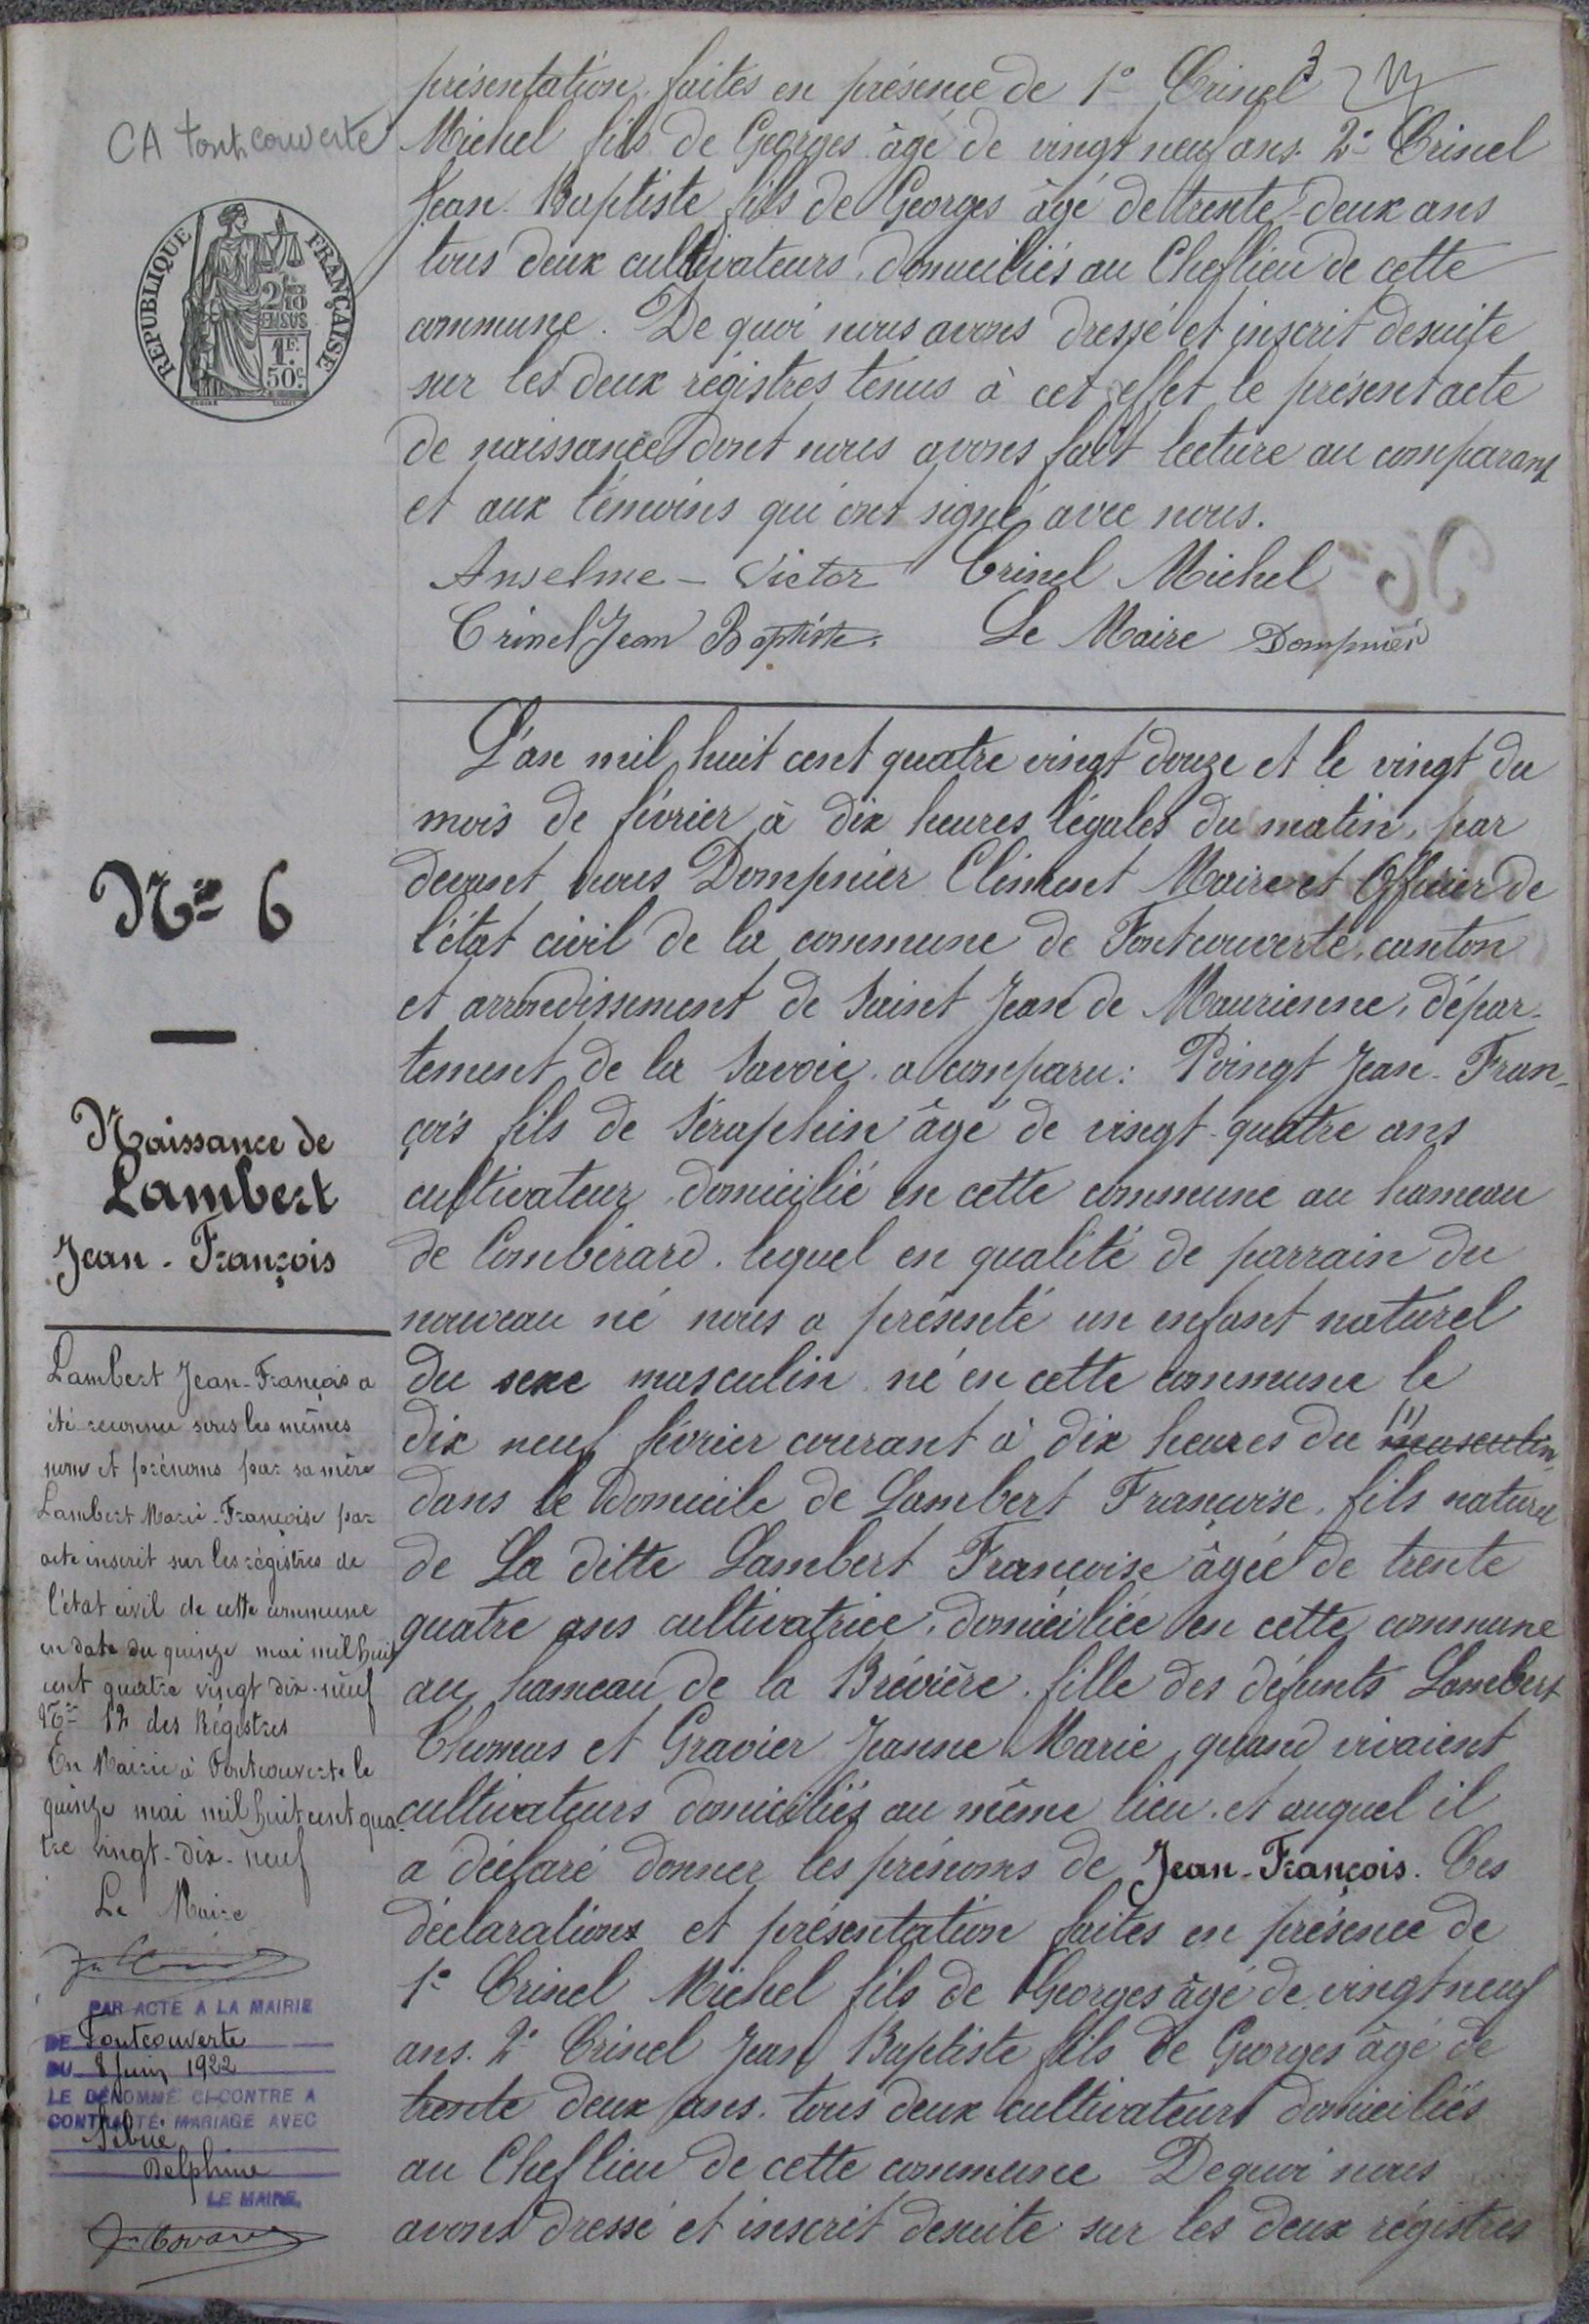 présentation, faites en présence de 1° Crinel 3
CA fontcouverte
Michel fils de Georges âgé de vingt neuf ans. 2° Crinel
Jean-Baptiste fils de Georges âgé de trente-deux ans
tous deux cultivateurs, domiciliés au Cheflieu de cette
commune. De quoi nous avons dressé et inscrit desuite
sur les deux régistres tenus à cet effet le présent acte
de naissance dont nous avons fait lecture au comparant
et aux témoins qui ont signé avec nous.
Anselme - Victor Crinel Michel
Crinel Jean Baptiste. Le Maire Dompnier
REPUBLIQUE FRANÇAISE
2/10 EN SUS
1F. 50c
L'an mil huit cent quatre vingt douze et le vingt du
mois de février à dix heures légales du matin, par
devant nous Dompnier Clément Maire et Officier de
l'état civil de la commune de Fontcouverte, canton
et arrondissement de Saint Jean de Maurienne, dépar-
tement de la Savoie. a comparu: Poingt Jean-Fran-
çois fils de Séraphin âgé de vingt-quatre ans
cultivateur, domicilié en cette commune au hameau
de Combérard. lequel en qualité de parrain du
nouveau né nous a présenté un enfant naturel
du sexe masculin né en cette commune le
dix neuf février courant à dix heures du (1) masculin
dans le domicile de Lambert Françoise, fils naturel
de La ditte Lambert Françoise âgée de trente
quatre ans cultivatrice, domiciliée en cette commune
au hameau de la Brévière. fille des défunts Lambert
Thomas et Gravier Jeanne Marie, quand vivaient
cultivateurs domiciliés au même lieu. et auquel il
a déclaré donner les prénoms de Jean-François. Ces
déclarations et présentation faites en présence de
1° Crinel Michel fils de Georges âgé de vingt neuf
ans. 2° Crinel Jean Baptiste fils de Georges âgé de
trente deux ans. tous deux cultivateurs domiciliés
au Cheflieu de cette commune De quoi nous
avons dressé et inscrit desuite sur les deux régistres
No 6
Naissance de
Lambert
Jean-François
Lambert Jean-François a
été reconnu sous les mêmes
nom et prénoms par sa mère
Lambert Marie-Françoise par
acte inscrit sur les régistres de
l'état civil de cette commune
en date du quinze mai mil huit
cent quatre vingt dix-neuf
No 12 des Régistres
En Mairie à Fontcouverte le
quinze mai mil huit cent qua-
tre vingt-dix-neuf
Le Maire
PAR ACTE A LA MAIRIE
DE Fontcouverte
DU 8 Juin 1922
LE DÉNOMMÉ CI-CONTRE A
CONTRACTÉ MARIAGE AVEC
Sibué
Delphine
LE MAIRE,